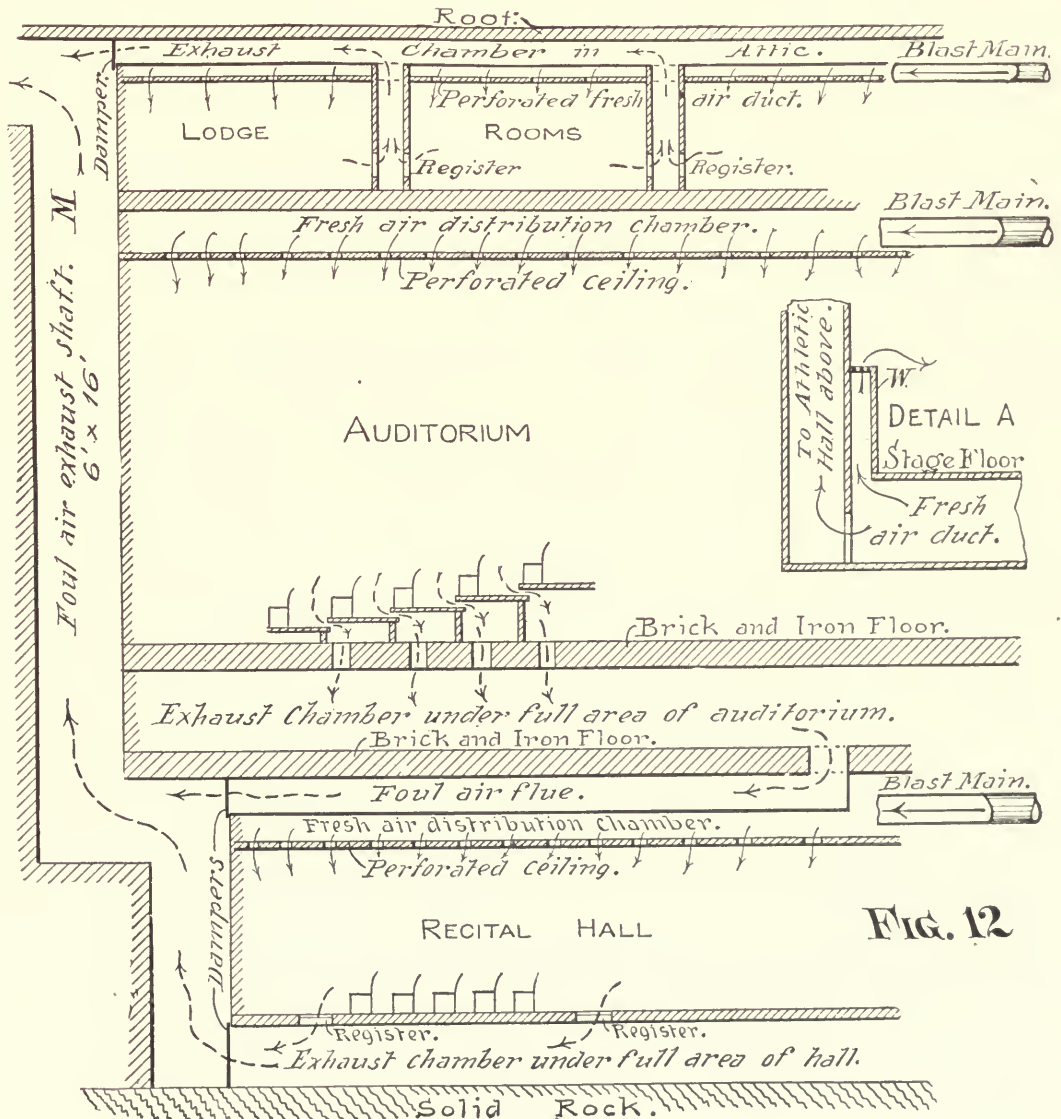 Roof.
Exhaust Chamber in Attic.
Blast Main.
Damper.
Perforated fresh air duct.
LODGE ROOMS
Register
Register.
Blast Main.
Fresh air distribution chamber.
Perforated ceiling.
Foul air exhaust shaft. M
6' x 16'
To Athletic
Hall above.
W.
DETAIL A
Stage Floor
Fresh
air duct.
AUDITORIUM
Brick and Iron Floor.
Exhaust Chamber under full area of auditorium.
Brick and Iron Floor.
Foul air flue.
Blast Main.
Fresh air distribution chamber.
Perforated ceiling.
Dampers
RECITAL HALL
FIG. 12
Register.
Register.
Exhaust chamber under full area of hall.
Solid Rock.